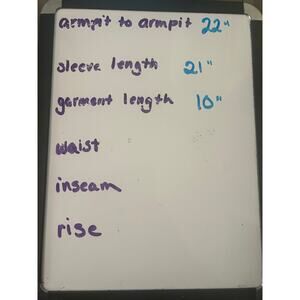 armpit to armpit 22"
sleeve length 21"
garment length 10"
waist
inseam
rise